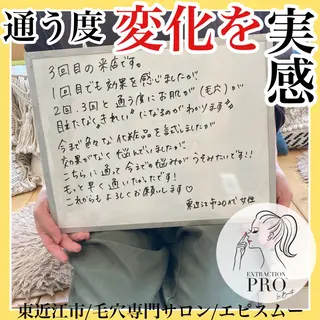 通う度変化を実感
3回目の来店です。
1回目でも効果を感じましたが
2回、3回と通う度にお肌が(毛穴)が
目立たなく"きれい"になるのがわかります。
今まで色々な化粧品を試しましたが
効果がなく悩んでいましたが、
こちらに通って今までの悩みがうそみたいです!!
もっと早く通いたかったです!
これからもよろしくお願いします♡
東近江市20代女性
EXTRACTION
PRO
東近江市/毛穴専門サロン/エピスムー